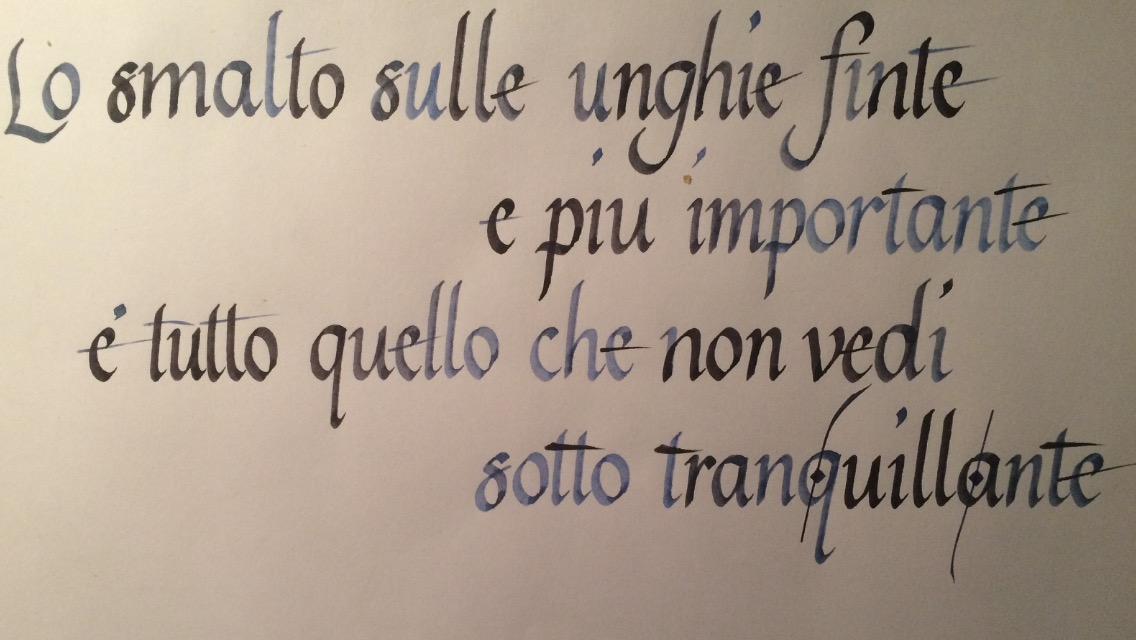 Lo smalto sulle unghie finte
e piu importante
é tutto quello che non vedi
sotto tranquillante